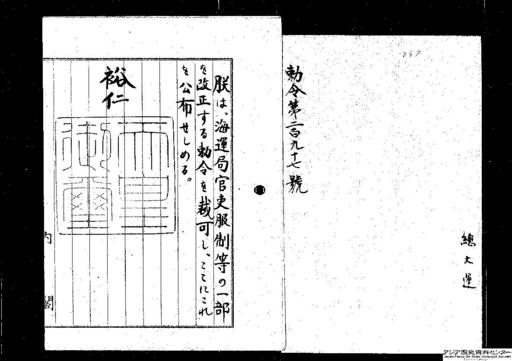 297
勅令第二百九十七號
總 大 運
朕は、海運局官吏服制等の一部
を改正する勅令を裁可し、ここにこれ
を公布せしめる。
裕仁
天皇御璽
内閣
アジア歴史資料センター